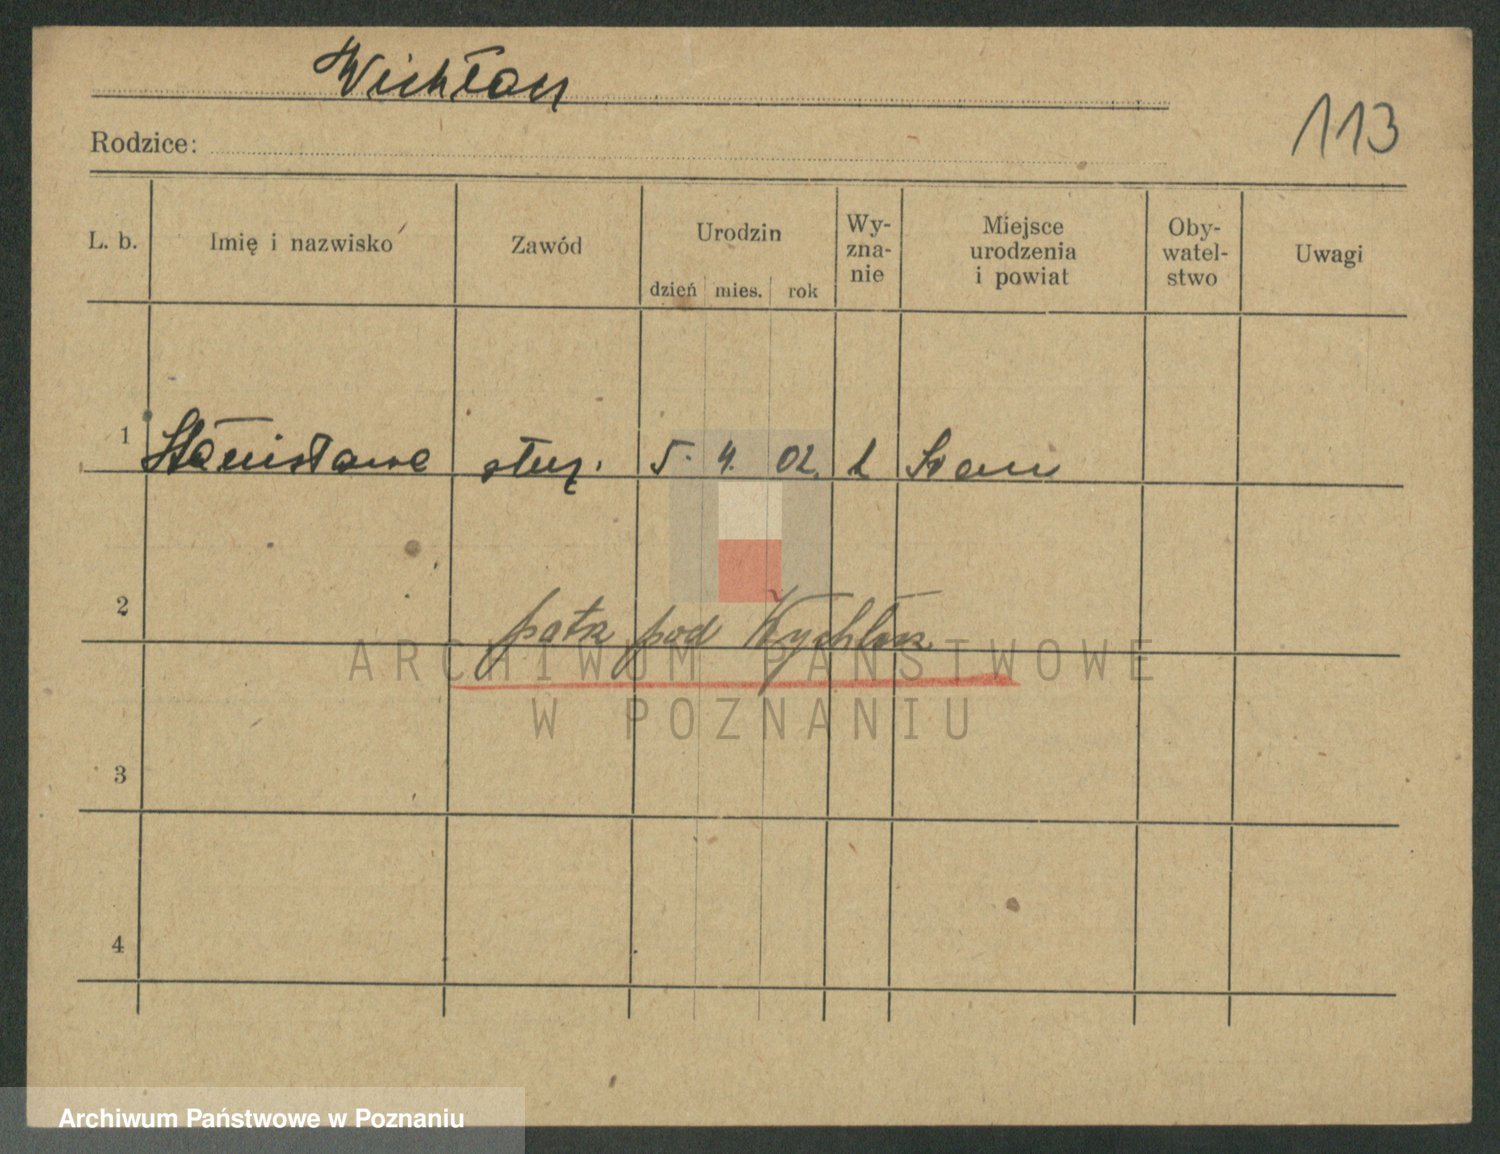 Wichłacz
113
Rodzice:
L. b. Imię i nazwisko Zawód Urodzin dzień mies. rok Wy-zna-nie Miejsce urodzenia i powiat Oby-watel-stwo Uwagi
1 Stanisława służ. 5. 4. 02.
2
patrz pod Wychłacz
3
4
ARCHIWUM PAŃSTWOWE
W POZNANIU
Archiwum Państwowe w Poznaniu